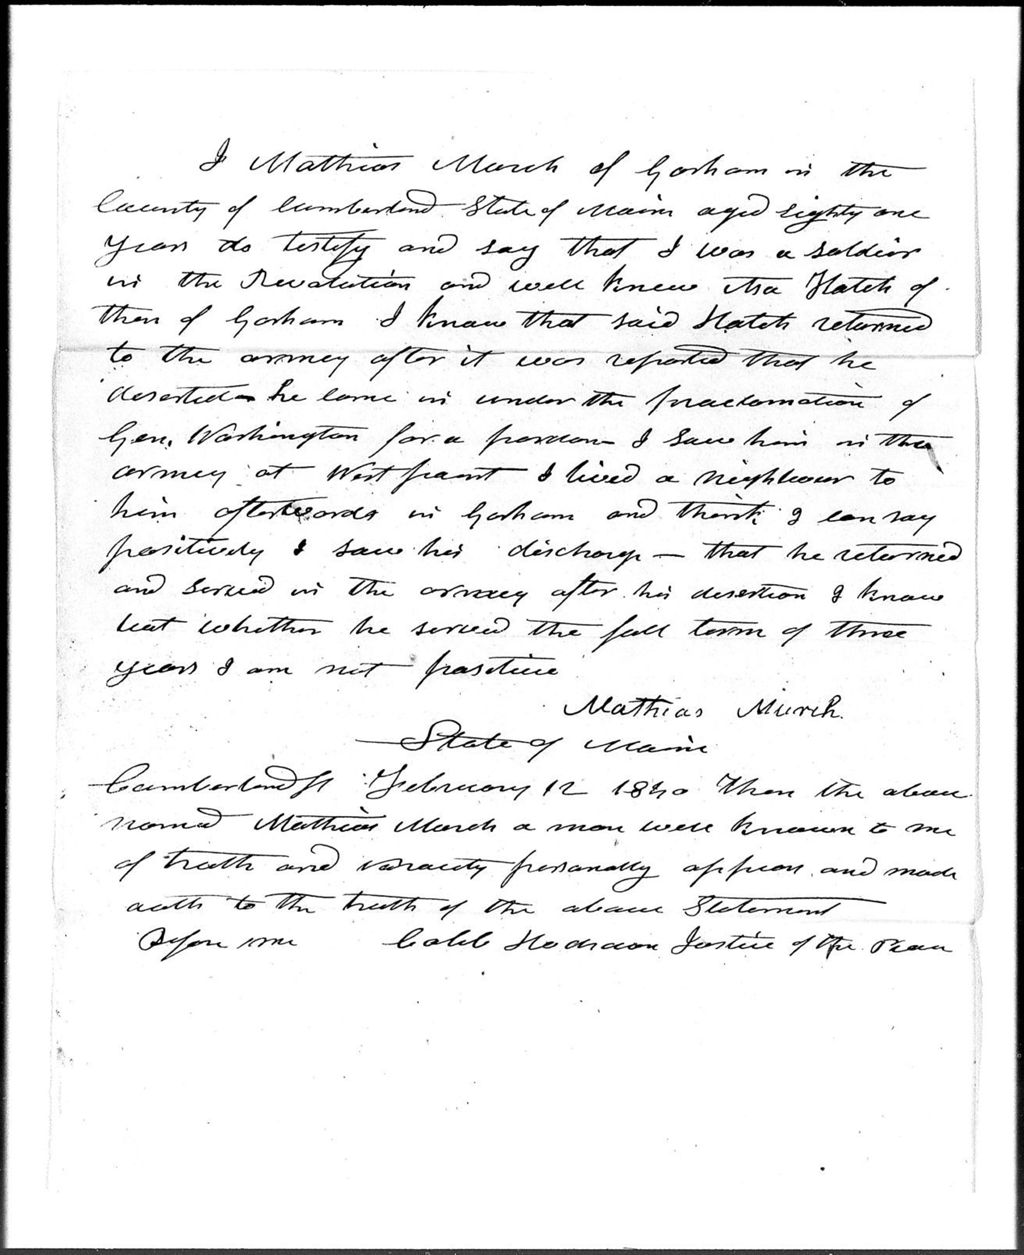 I Mathias Murch of Gorham in the
County of Cumberland State of Maine aged Eighty one
years do testify and say that I was a soldier
in the Revolution and well knew Asa Hatch of
then of Gorham I know that said Hatch returned
to the armey after it was reported that he
deserted he came in under the proclamation of
Gen. Washington for a pardon I saw him in the
armey at West point I lived a neighbour to
him afterwards in Gorham and think I can say
positively I saw his discharge — that he returned
and served in the armey after his desertion I know
but whether he served the full term of three
years I am not positive
Mathias Murch.
State of Maine
Cumberland ss February 12 1840 Then the above
named Mathias Murch a man well known to me
of truth and veracity personally appear and made
oath to the truth of the above Statement
Before me Caleb Hodsdon Justice of the Peace